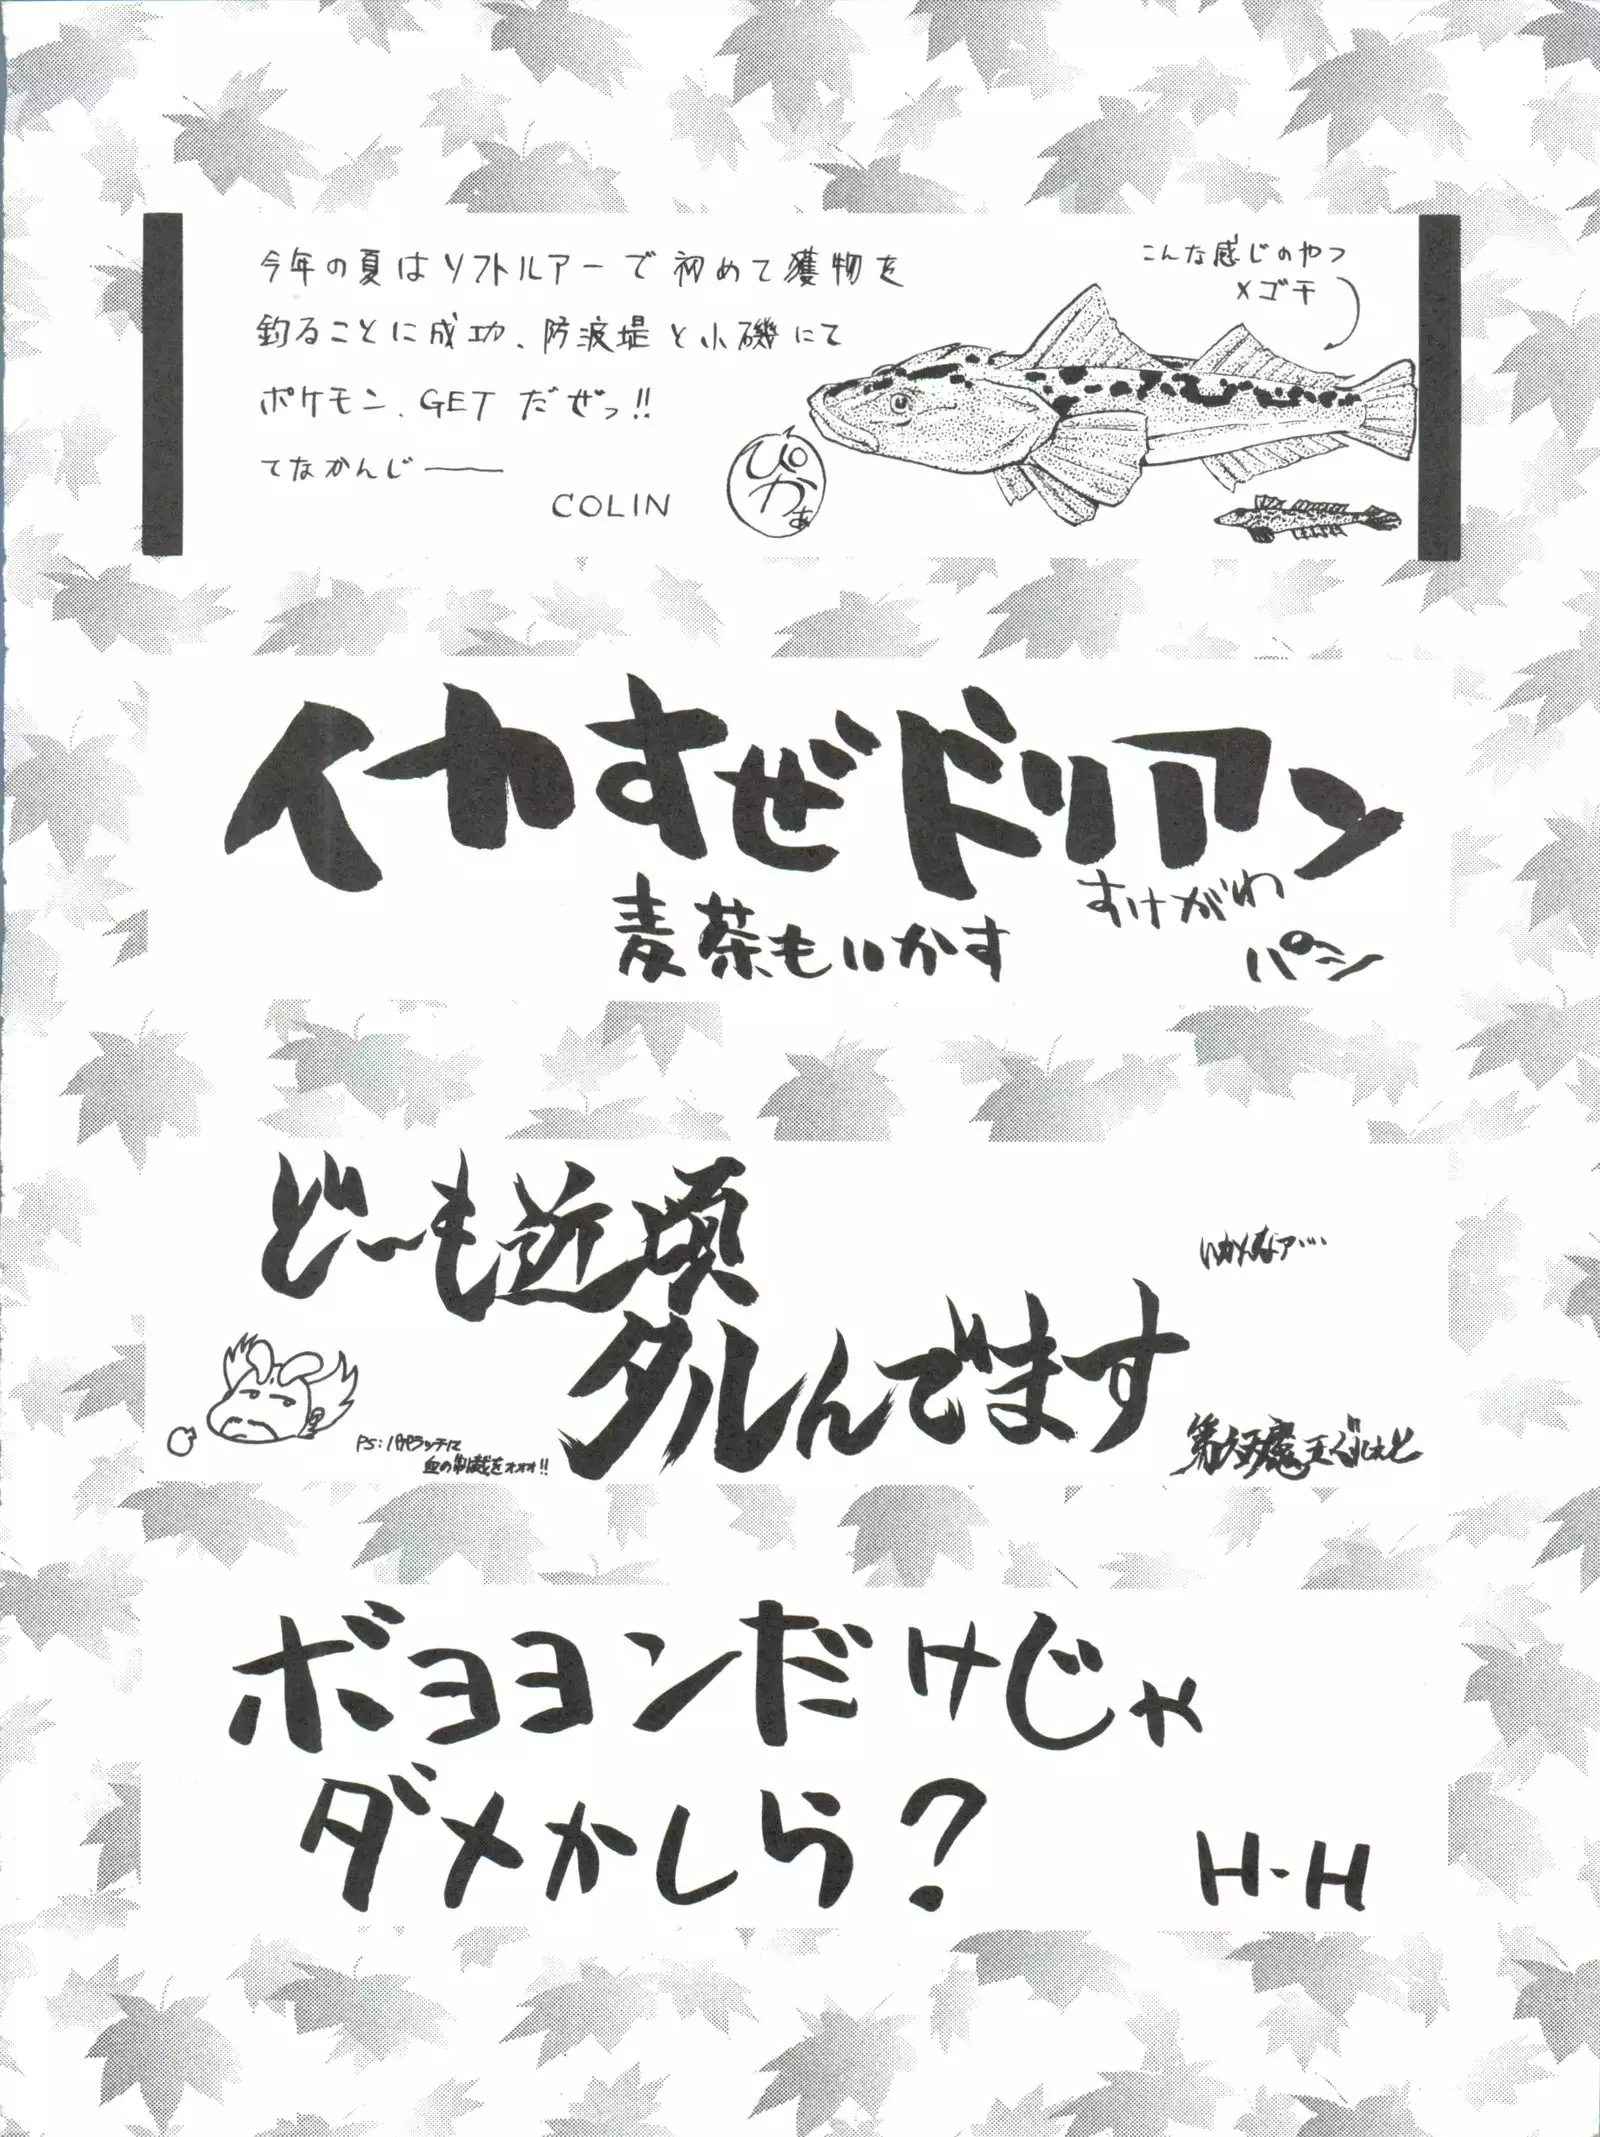 今年の夏はソフトルアーで初めて獲物を
釣ることに成功、防波堤と小磯にて
ポケモン、GETだぜっ!!
てなかんじ——
COLIN
ぴかぁ
こんな感じのやつ
メゴチ
イカすぜドリアン
麦茶もいかす
すけがわ
パン
どーも近頃
タルんでます
いかんなァ…
PS:パパラッチに
血の制裁をォォォ!!
ボヨヨンだけじゃ
ダメかしら?
H・H